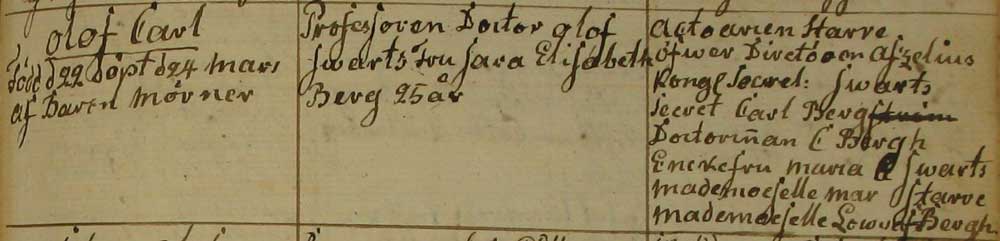 Olof Carl
Född d 22 döpt d 24 Mars
af Baron Mörner
Professoren Doctor Olof
Swarts Fru Sara Elisabeth
Berg 25 år
Actoarien Starre
Öfwer Directören Afzelius
Kongl Secret: Swarts
Secret Carl Berg
Doctorinnan C Bergh
Enckefru Maria Swarts
Mademoeselle Mar Starre
Mademoeselle Lowisa Bergh